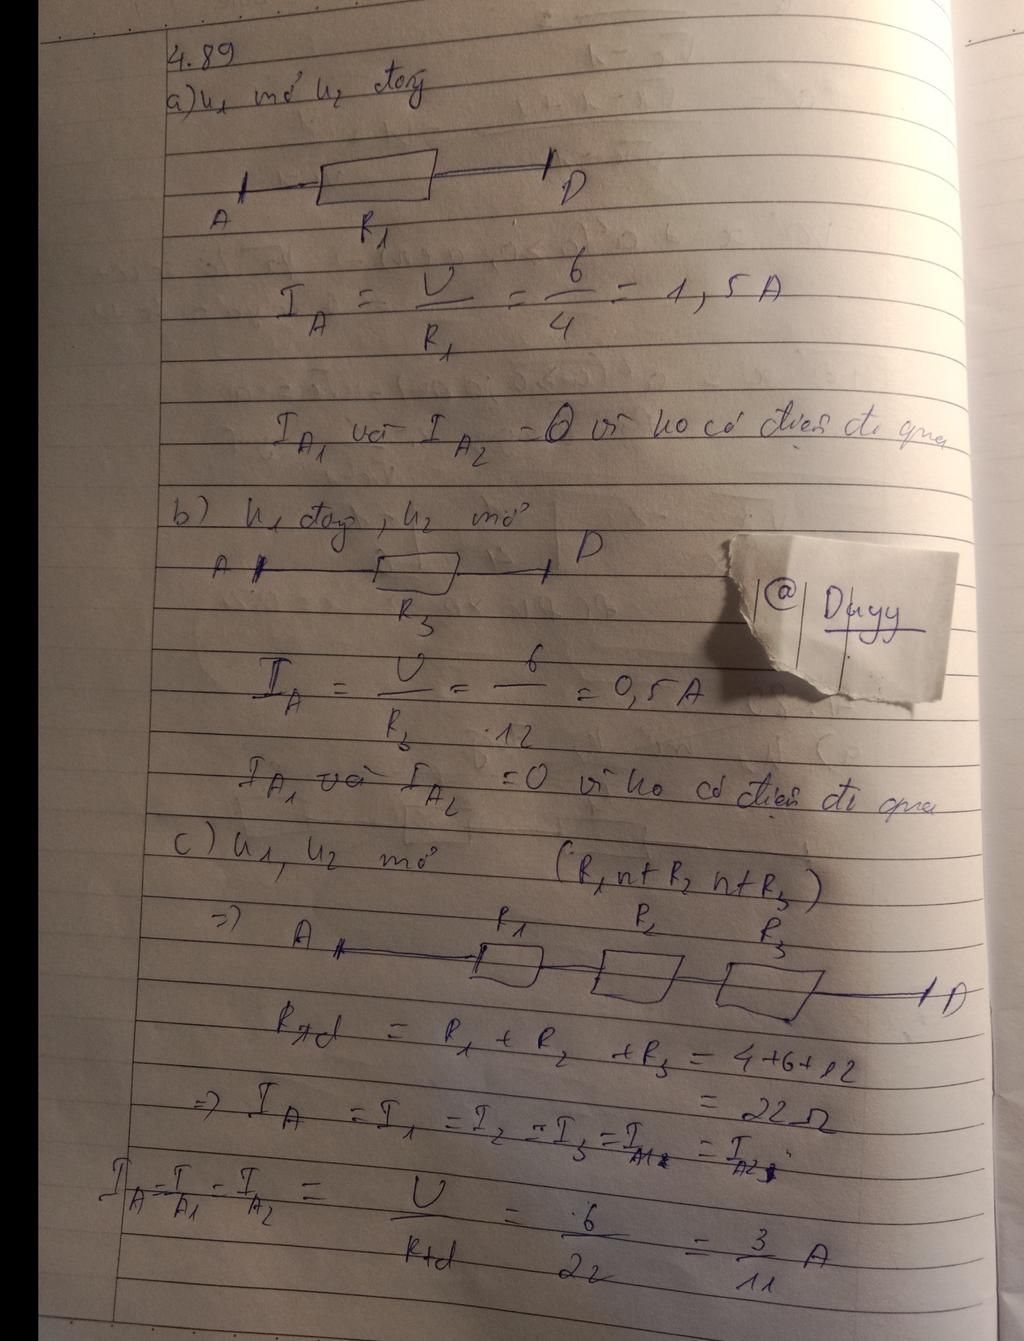 4.89
a) K1 mở K2 đóng
A R1 D
I_A = U/R1 = 6/4 = 1,5A
I_A1 và I_A2 = 0 vì ko có điện đi qua
b) K1 đóng, K2 mở
A R3 D
@ Duyy
I_A = U/R3 = 6/12 = 0,5A
I_A1 và I_A2 = 0 vì ko có điện đi qua
c) K1, K2 mở (R1 nt R2 nt R3)
=> A R1 R2 R3 D
Rtđ = R1 + R2 + R3 = 4+6+12
= 22Ω
=> I_A = I1 = I2 = I3 = I_A1 = I_A2
I_A = I_A1 = I_A2 = U/Rtđ = 6/22 = 3/11 A